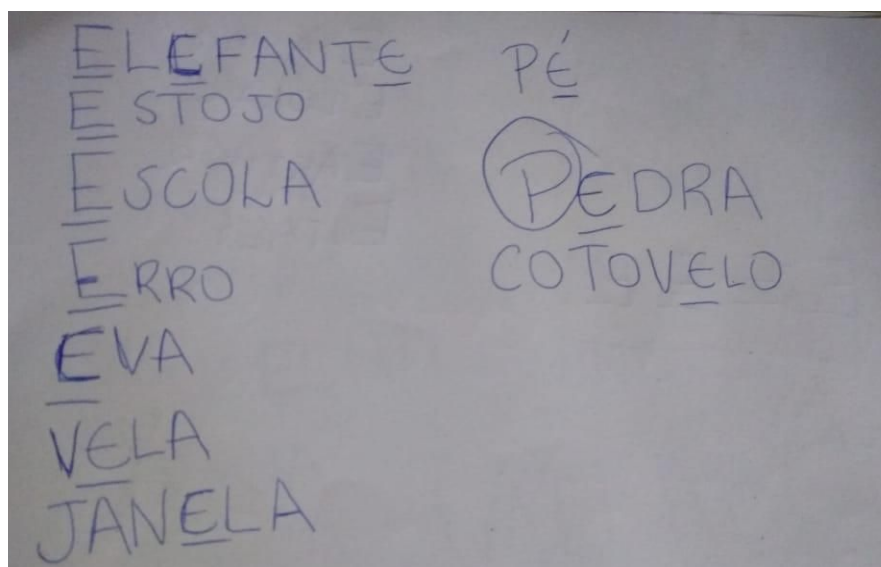 ELEFANTE
ESTOJO
ESCOLA
ERRO
EVA
VELA
JANELA
PÉ
PEDRA
COTOVELO